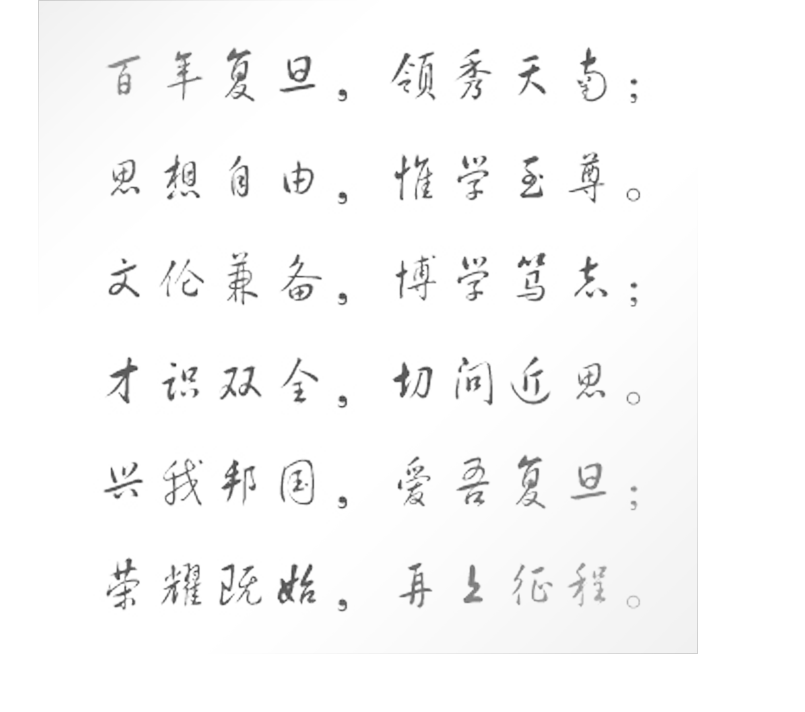 百年复旦，领秀天南；
思想自由，惟学至尊。
文伦兼备，博学笃志；
才识双全，切问近思。
兴我邦国，爱吾复旦；
荣耀既始，再上征程。